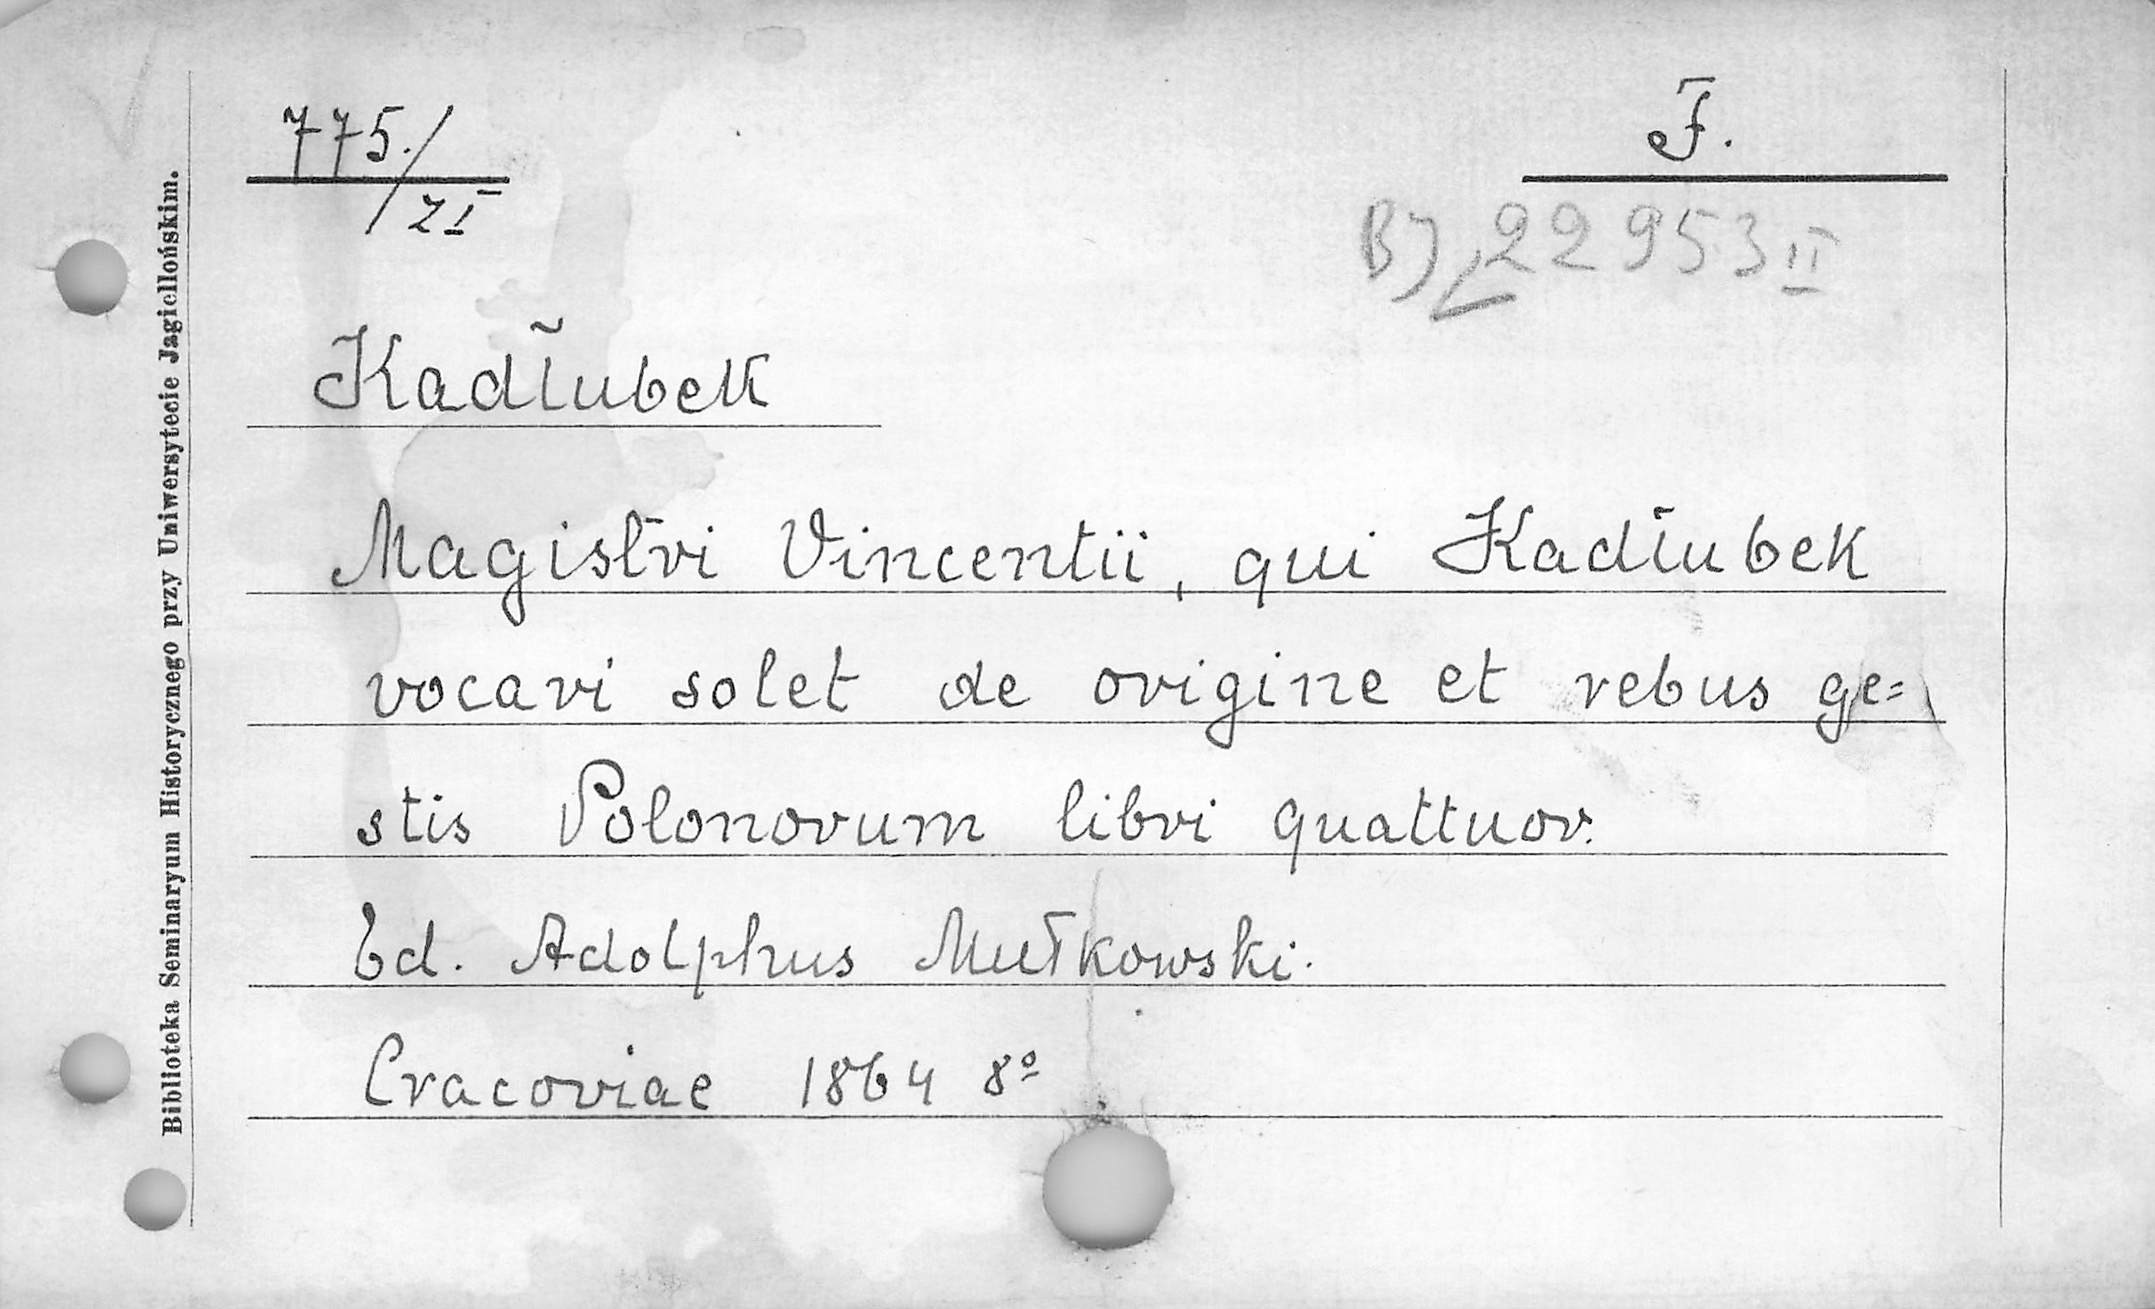 775./ZI
F.
BJ 22953 II
Kadłubek
Magistri Vincentii, qui Kadłubek
vocari solet de origine et rebus ge=
stis Polonorum libri quattuor.
Ed. Adolphus Mułkowski.
Cracoviae 1864 8º
Biblioteka Seminaryum Historycznego przy Uniwersytecie Jagiellońskim.